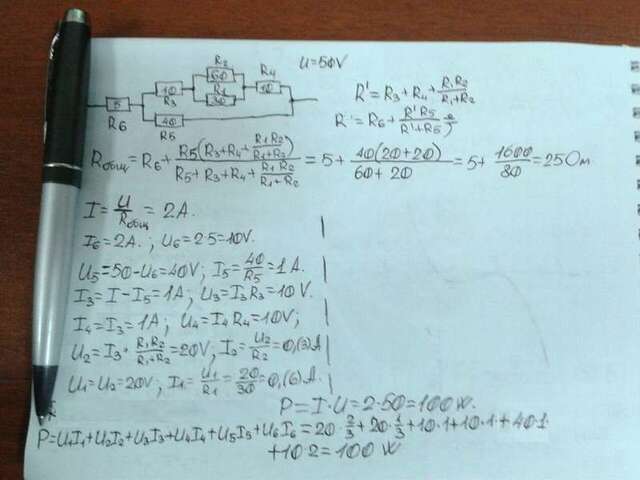 U=50V
R2
60
R4
10
R3
R1
30
10
5
R6
40
R5
R'=R3+R4+R1R2/R1+R2
R''=R6+R'R5/R'+R5
Rобщ=R6+R5(R3+R4+R1R2/R1+R2)/R5+R3+R4+R1R2/R1+R2=5+40(20+20)/60+20=5+1600/80=25Ом
I=U/Rобщ=2A.
I6=2A.; U6=2·5=10V.
U5=50-U6=40V; I5=40/R5=1A.
I3=I-I5=1A; U3=I3R3=10V.
I4=I3=1A; U4=I4R4=10V;
U2=I3+R1R2/R1+R2=20V; I2=U2/R2=0,(3)A
U1=U2=20V; I1=U1/R1=20/30=0,(6)A.
P=I·U=2·50=100W.
P=U1I1+U2I2+U3I3+U4I4+U5I5+U6I6=20·2/3+20·1/3+10·1+10·1+40·1
+10·2=100W